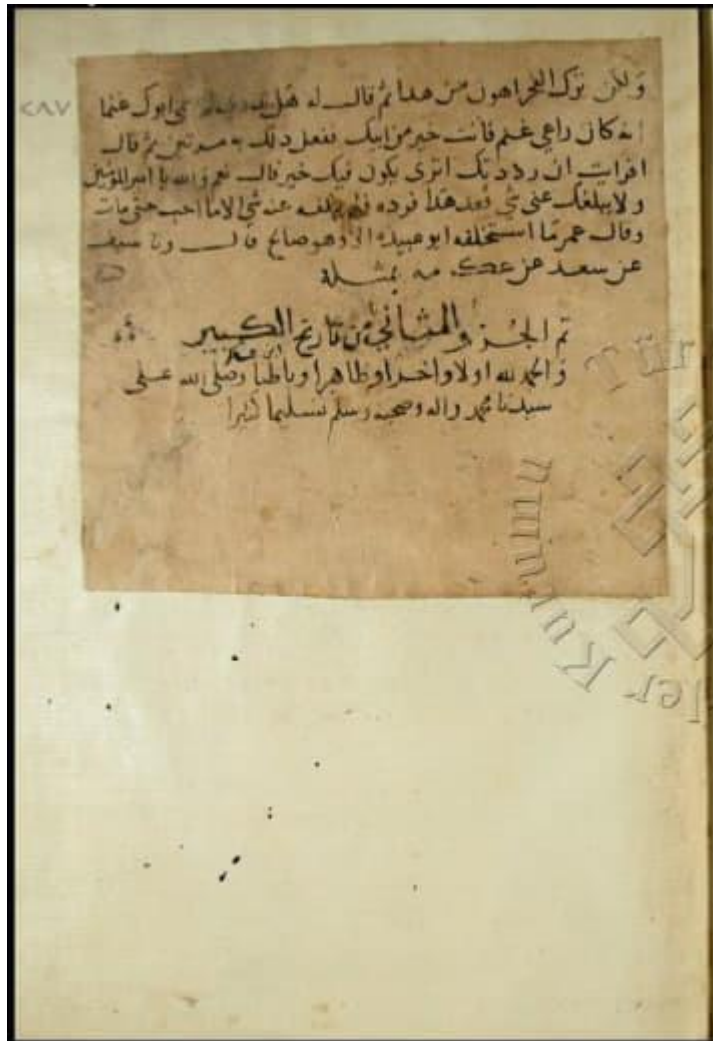 ولكن ترك الفجر اهون من هذا ثم قال له هل ابوك غنما
انه كان راعي غنم فانت خير من ابيك ففعل ذلك به مرتين ثم قال
افرايت ان رددتك اترى يكون فيك خير قال نعم والله يا امير المؤمنين
ولا يبلغك عني شي بعد هذا فرده فلم يبلغه عنه شي الا ما احب حتى مات
وقال عمر ما استخلفه ابو عبيدة الا وهو صالح قال ونا سيف
عن سعد عن عكرمه بمثله
تم الجزء والمثاني من تاريخ الكبير
والحمد لله اولا واخرا وظاهرا وباطنا وصلى الله على
سيدنا محمد واله وصحبه وسلم تسليما كثيرا
٢٨٧